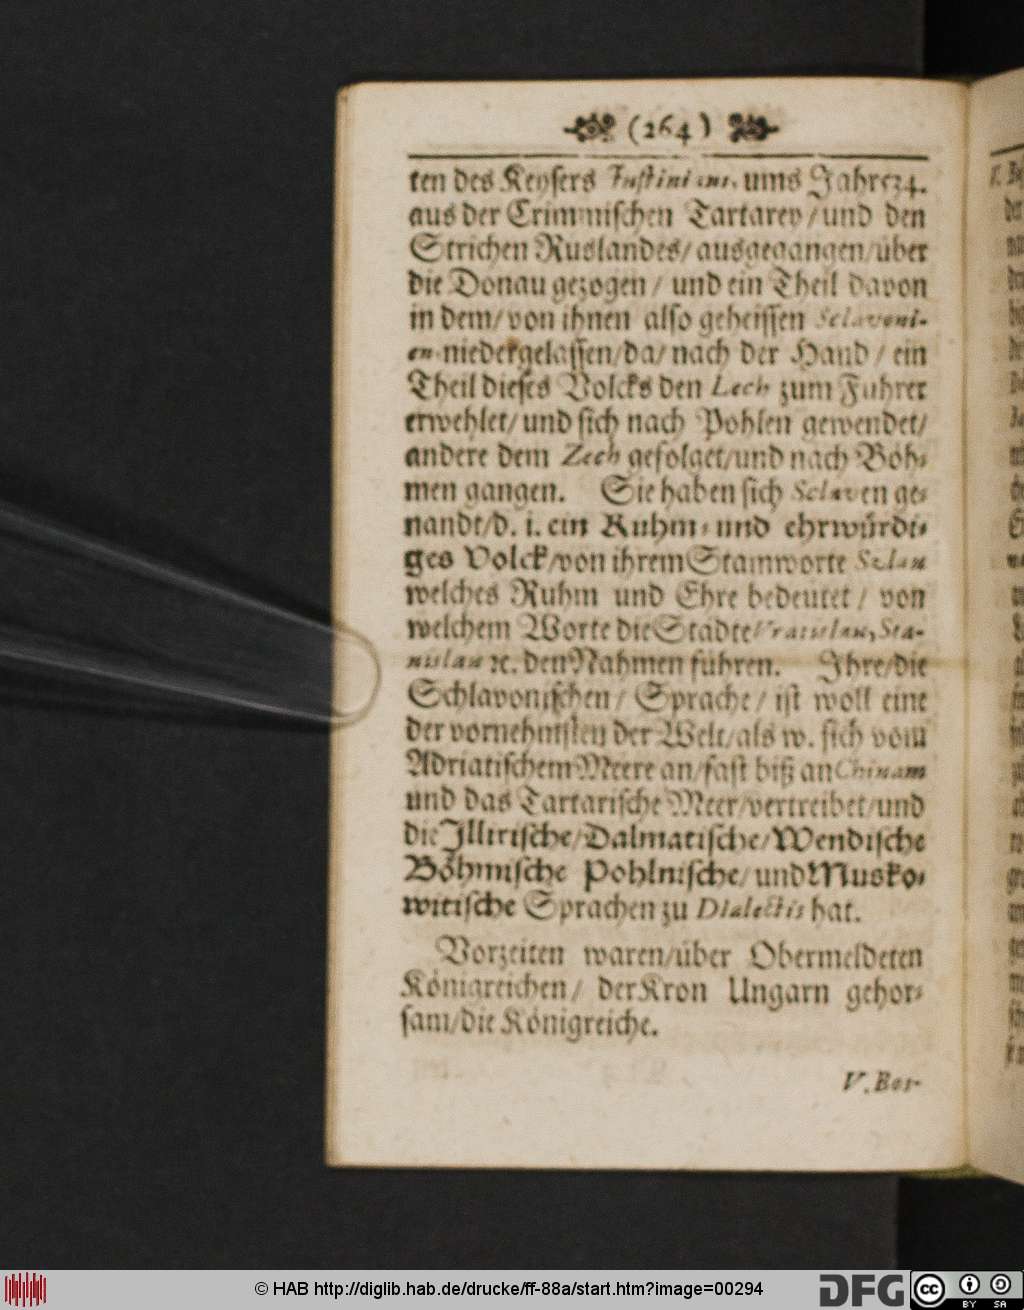 (264)
ten des Keysers Justiniani, ums Jahr
aus der Crimmischen Tartarey/und den
Strichen Ruslandes/ausgegangen/über
die Donau gezogen/ und ein Theil davon
in dem/von ihnen also geheissen Sclavoni-
en niedergelassen/da/ nach der Hand/ ein
Theil dieses Volcks den Lech zum Fuhrer
erwehlet/und sich nach Pohlen gewendet/
andere dem Zech gefolget/und nach Böh-
men gangen. Sie haben sich Sclaven ge-
nandt/d. i. ein Ruhm- und ehrwürdi-
ges Volck/von ihrem Stamworte Szlau
welches Ruhm und Ehre bedeutet/ von
welchem Worte die Städte Vratislau, Sta-
nislau ꝛc. den Nahmen führen. Ihre/die
Schlavonischen/ Sprache/ ist woll eine
der vornehmsten der Welt/als w. sich vom
Adriatischem Meere an/fast biß an Chinam
und das Tartarische Meer/vertreibet/und
die Illirische/Dalmatische/Wendische
Böhmische Pohlnische/und Musko-
witische Sprachen zu Dialectis hat.
Vorzeiten waren/über Obermeldeten
Königreichen/ der Kron Ungarn gehor-
sam/die Königreiche.
V. Bos-
© HAB http://diglib.hab.de/drucke/ff-88a/start.htm?image=00294
DFG
cc BY SA